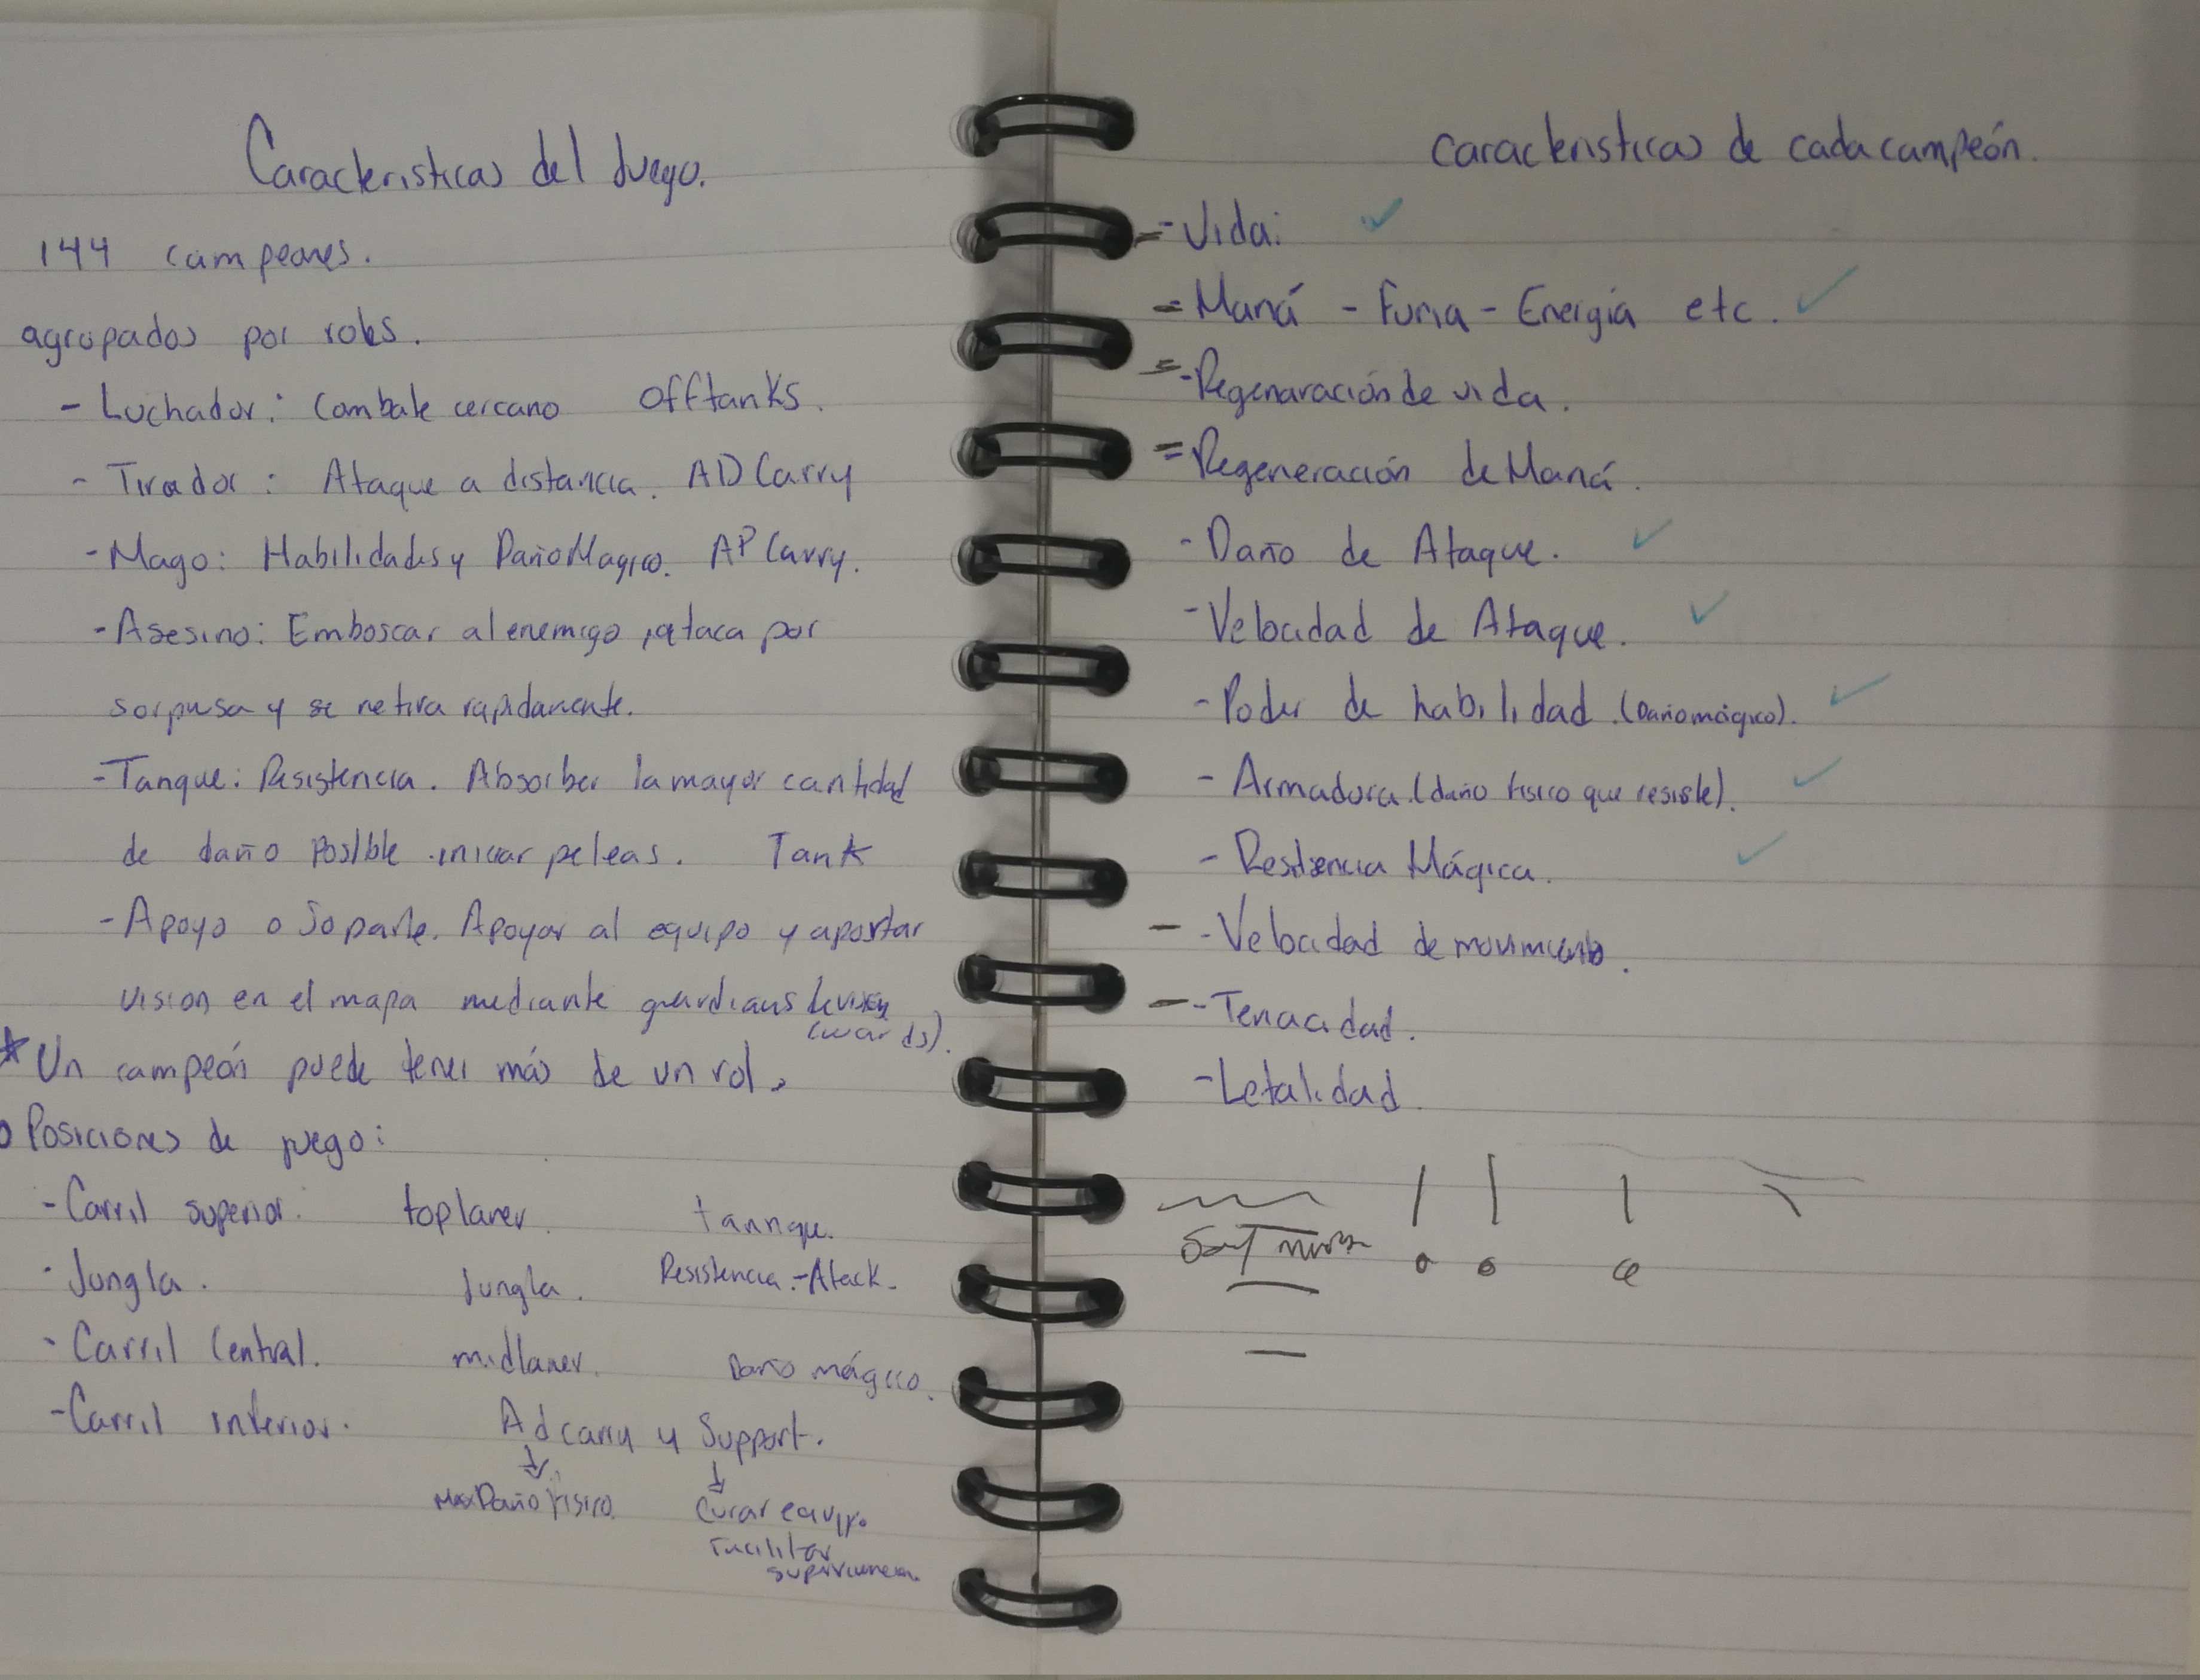 Caracteristicas del Juego.
144 campeones.
agrupados por roles.
- Luchador: Combate cercano offtanks.
- Tirador: Ataque a distancia. AD Carry
- Mago: Habilidades y Daño Magico. AP Carry.
- Asesino: Emboscar al enemigo, ataca por
sorpresa y se retira rapidamente.
- Tanque: Resistencia. Absorber la mayor cantidad
de daño posible iniciar peleas. Tank
- Apoyo o Soporte. Apoyar al equipo y aportar
vision en el mapa mediante guardianes de vision
(wards).
* Un campeón puede tener más de un rol.
o Posiciones de juego:
- Carril superior: toplaner. tannque.
- Jungla. Jungla. Resistencia - Atack.
- Carril Central. midlaner. Daño mágico.
- Carril inferior. Adcarry y Support.
Max Daño Fisico. Curar equipo.
Facilitar
Caracteristicas de cada campeón.
- Vida: ✓
- Maná - Furia - Energía etc. ✓
- Regenaración de vida.
- Regeneración de Maná.
- Daño de Ataque. ✓
- Velocidad de Ataque. ✓
- Poder de habilidad. (Daño mágico). ✓
- Armadura. (daño fisico que resiste). ✓
- Resistencia Mágica. ✓
- Velocidad de movimiento.
- Tenacidad.
- Letalidad.